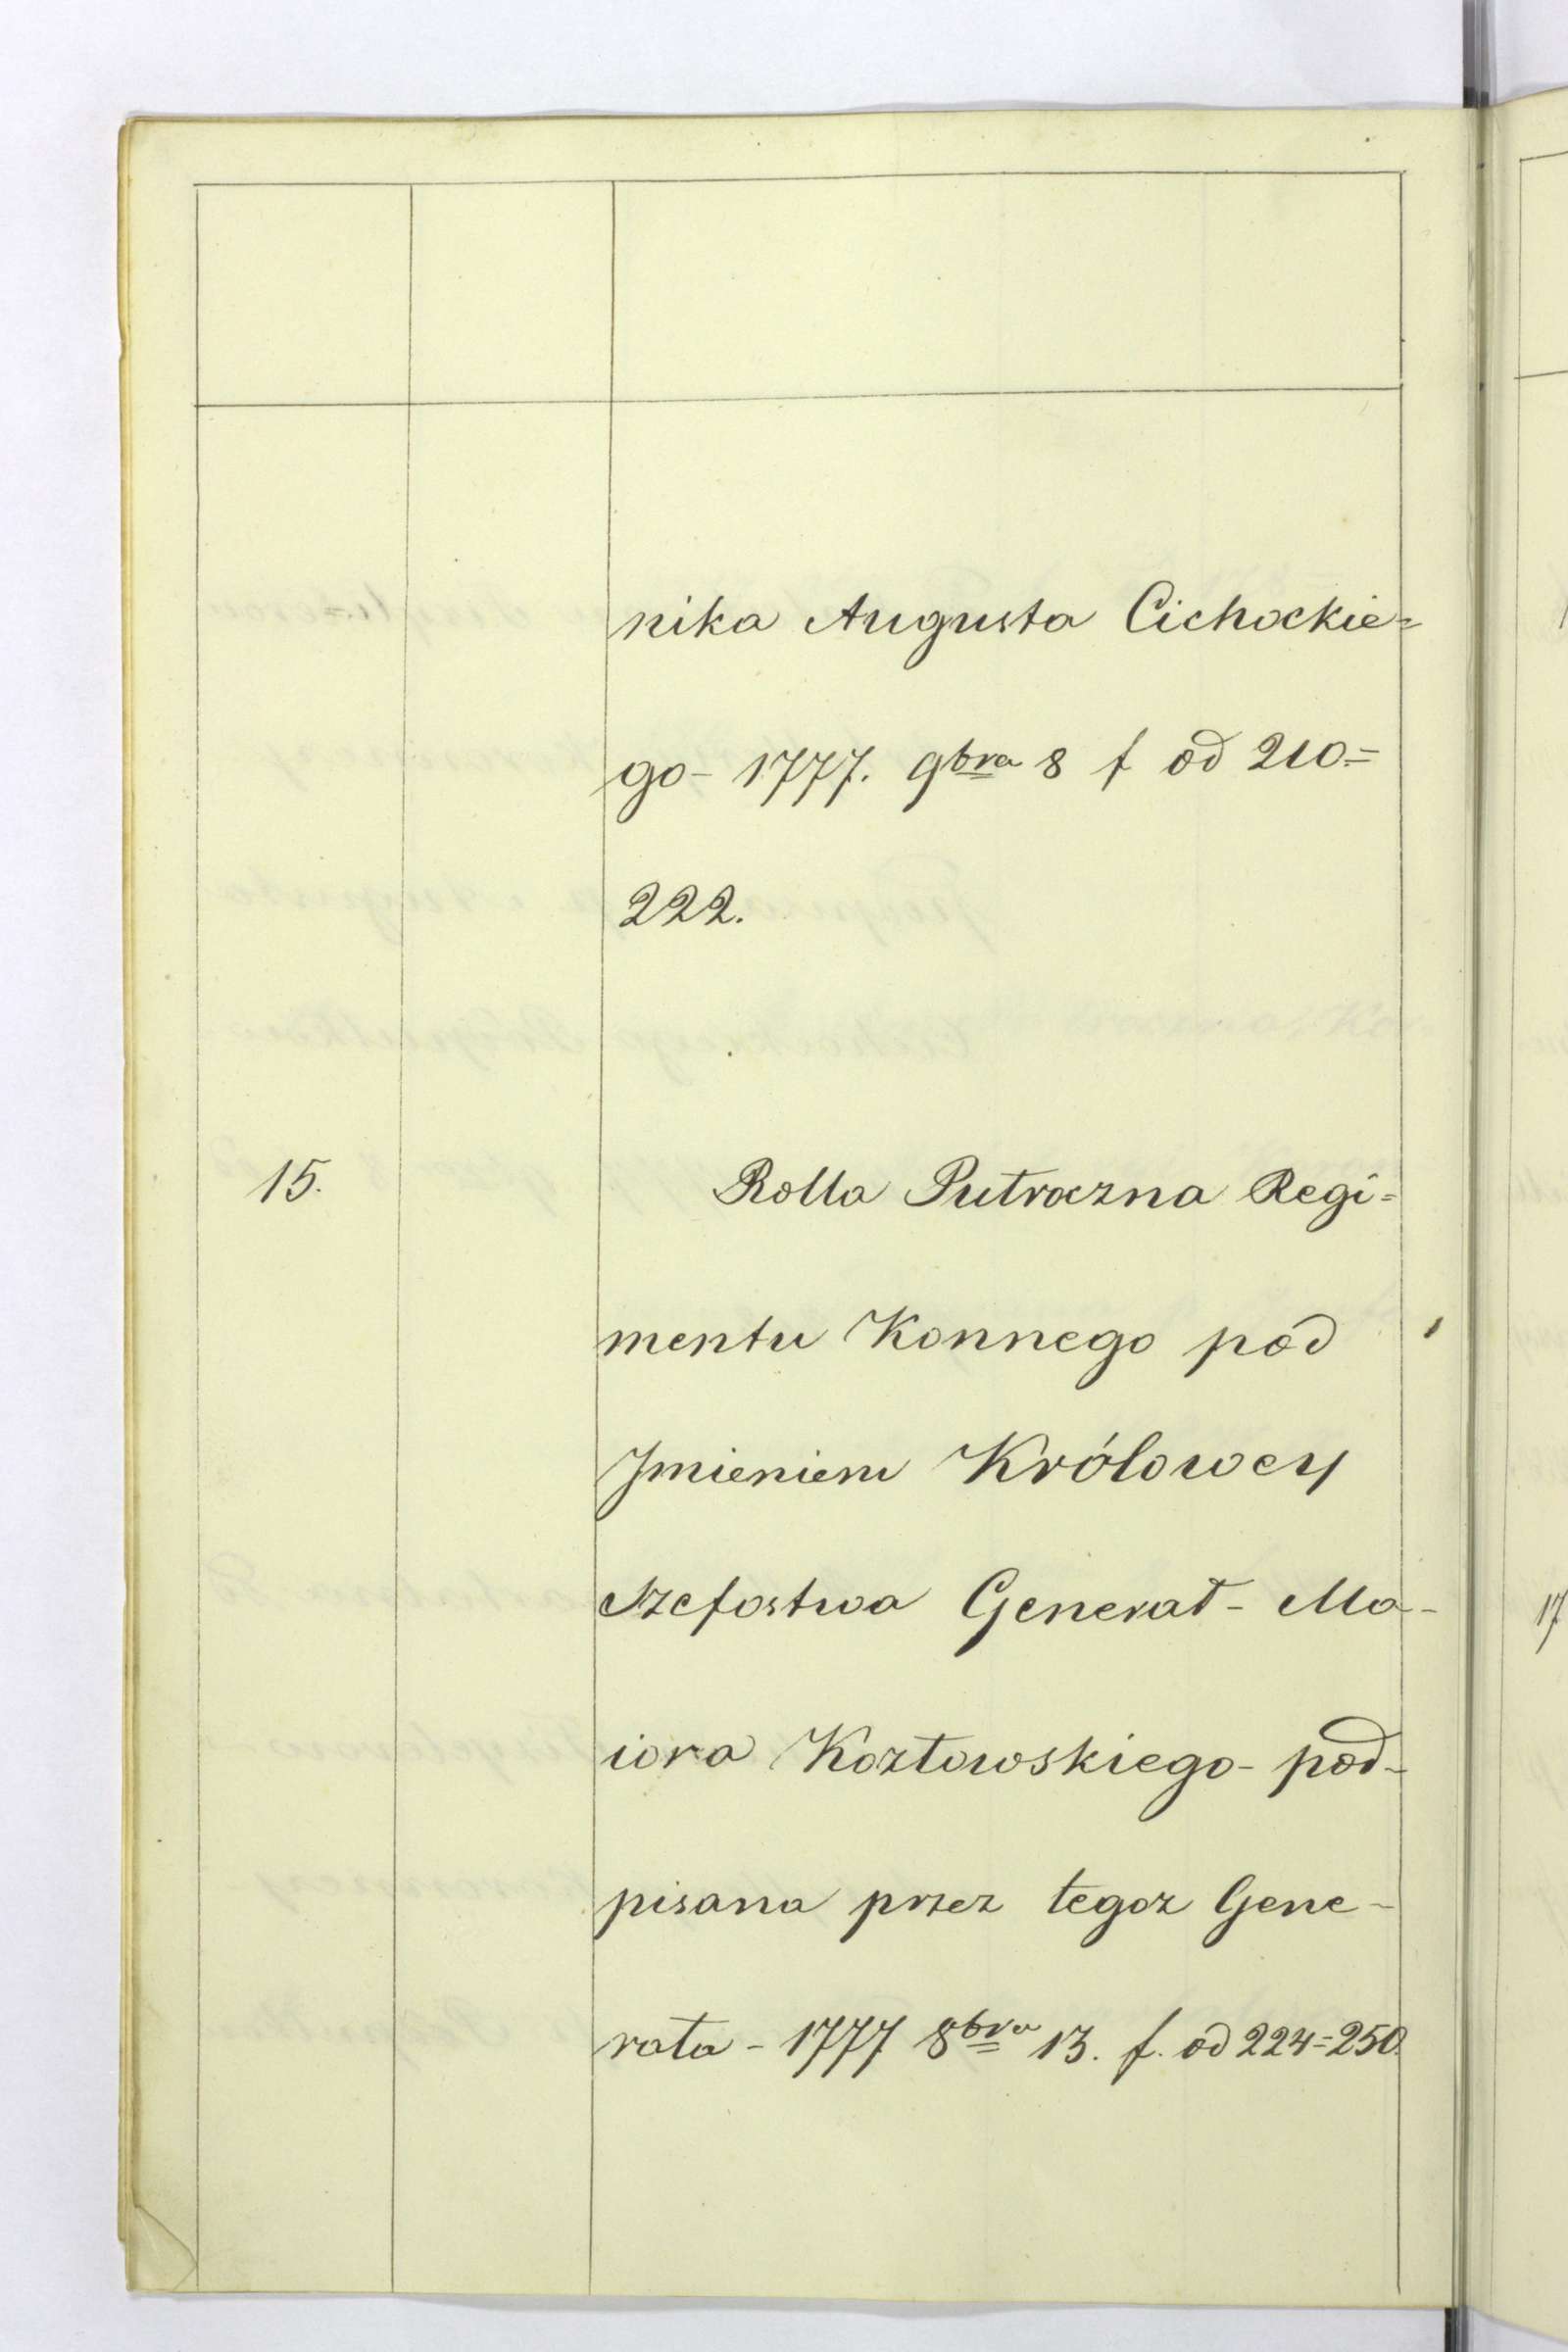 nika Augusta Cichockie=
go - 1777. 9bra 8 f od 210.=
222.
15. Rolla Putroczna Regi=
mentu Konnego pod
Jmieniem Królowey
Szefostwa Generał - Ma-
iora Kozłowskiego - pod-
pisana przez tegoz Gene-
rała - 1777 8bra 13. f. od 224=250.
17